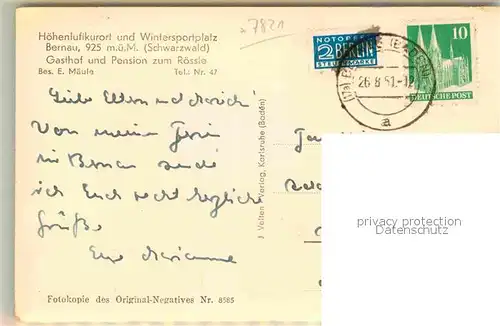 7821
Höhenluftkurort und Wintersportplatz
Bernau, 925 m.ü.M. (Schwarzwald)
Gasthof und Pension zum Rössle
Bes. E. Mäule Tel.: Nr. 47
NOTOPFER
2 BERLIN
STEUERMARKE
10
DEUTSCHE POST
(17a) 26.8.51.-12
a
Liebe Eltern und
Von meinen Ferien
in Bernau sende
ich Euch recht herzliche
Grüße
Eure Marianne
J. Velten Verlag, Karlsruhe (Baden)
privacy protection
Datenschutz
Fotokopie des Original-Negatives Nr. 8585